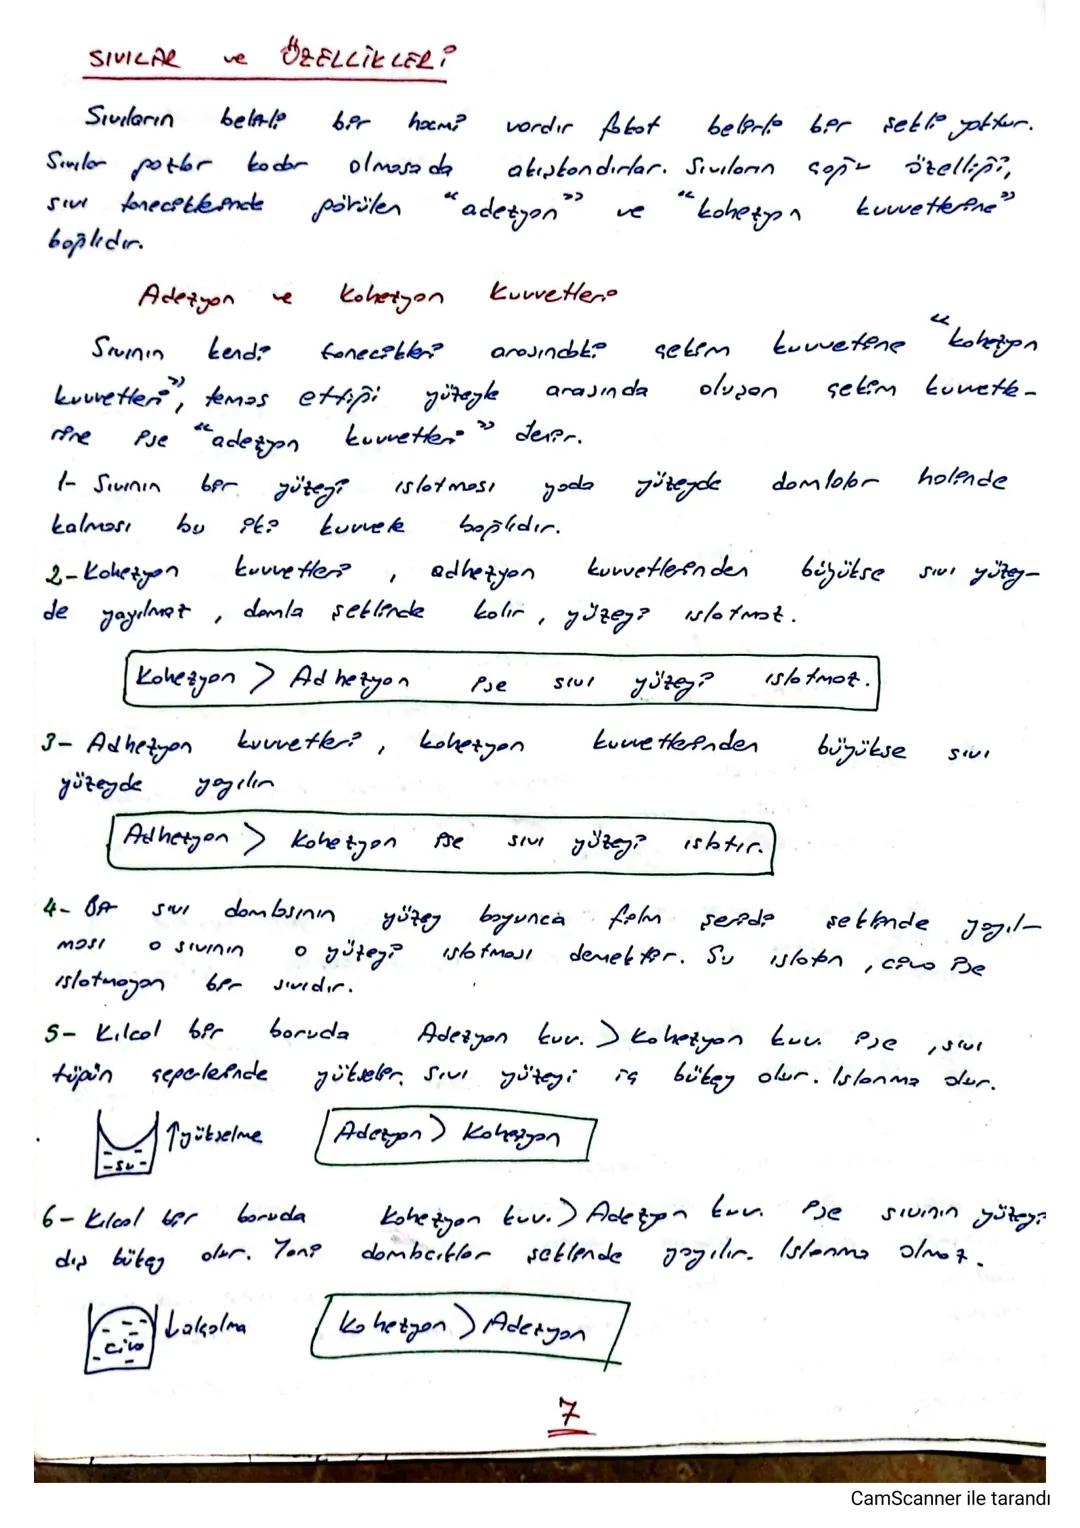 SIVILAR ve ÖZELLİKLERİ
Sıvıların belirli bir hacmi vardır fakat belirli bir şekli yoktur.
Sıvılar gazlar kadar olmasa da akışkandırlar. Sıvıların çoğu özelliği,
sıvı taneciklerinde görülen "adezyon" ve "kohezyon kuvvetlerine"
bağlıdır.
Adezyon ve Kohezyon Kuvvetleri
Sıvının kendi tanecikleri arasındaki çekim kuvvetine "kohezyon
kuvvetleri", temas ettiği yüzeyle arasında oluşan çekim kuvvetle-
rine ise "adezyon kuvvetleri" denir.
1- Sıvının bir yüzeyi ıslatması yada yüzeyde damlalar halinde
kalması bu iki kuvvete bağlıdır.
2- Kohezyon kuvvetleri, adhezyon kuvvetlerinden büyükse sıvı yüzey-
de yayılmaz, damla şeklinde kalır, yüzeyi ıslatmaz.
Kohezyon > Adhezyon ise sıvı yüzeyi ıslatmaz.
3- Adhezyon kuvvetleri, kohezyon kuvvetlerinden büyükse sıvı
yüzeyde yayılır
Adhezyon > Kohezyon ise sıvı yüzeyi ıslatır.
4- Bir sıvı damlasının yüzey boyunca film şeridi şeklinde yayıl-
ması o sıvının o yüzeyi ıslatması demektir. Su ıslatan, civa ise
ıslatmayan bir sıvıdır.
5- Kılcal bir boruda Adezyon kuv. > Kohezyon kuv. ise, sıvı
tüpün çeperlerinde yükselir. Sıvı yüzeyi iç bükey olur. Islanma olur.
-su- ↑yükselme Adezyon > Kohezyon
6- Kılcal bir boruda Kohezyon kuv. > Adezyon kuv. ise sıvının yüzeyi
dış bükey olur. Yani dambcıklar şeklinde yayılır. Islanma olmaz.
civa ↓alçalma Kohezyon > Adezyon
7
CamScanner ile tarandı